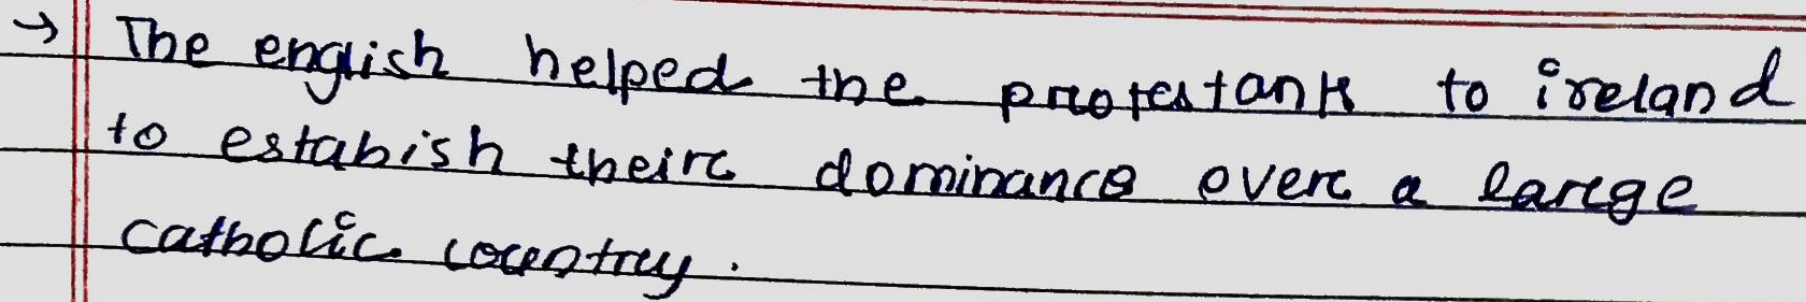 → The english helped the protestants to ireland
to estabish their dominance over a large
catholic country.